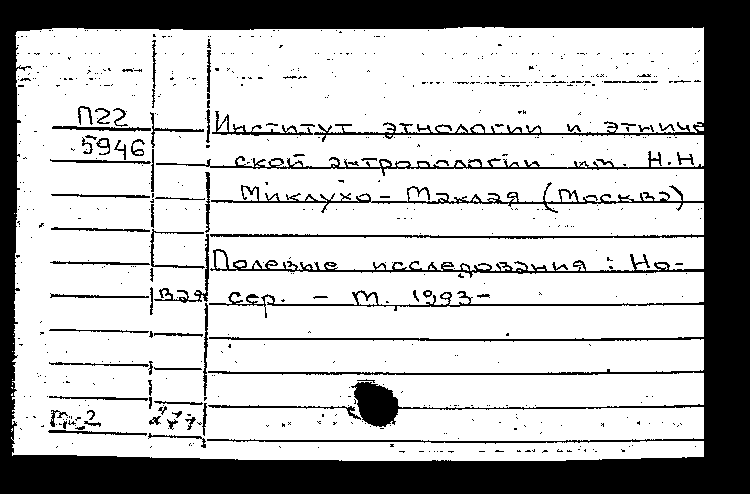 П22 Институт этнологии и этниче
5946 ской антропологии им. Н.Н.
Миклухо-Маклая (Москва)
Полевые исследования : Но-
вая сер. – М., 1993–
277